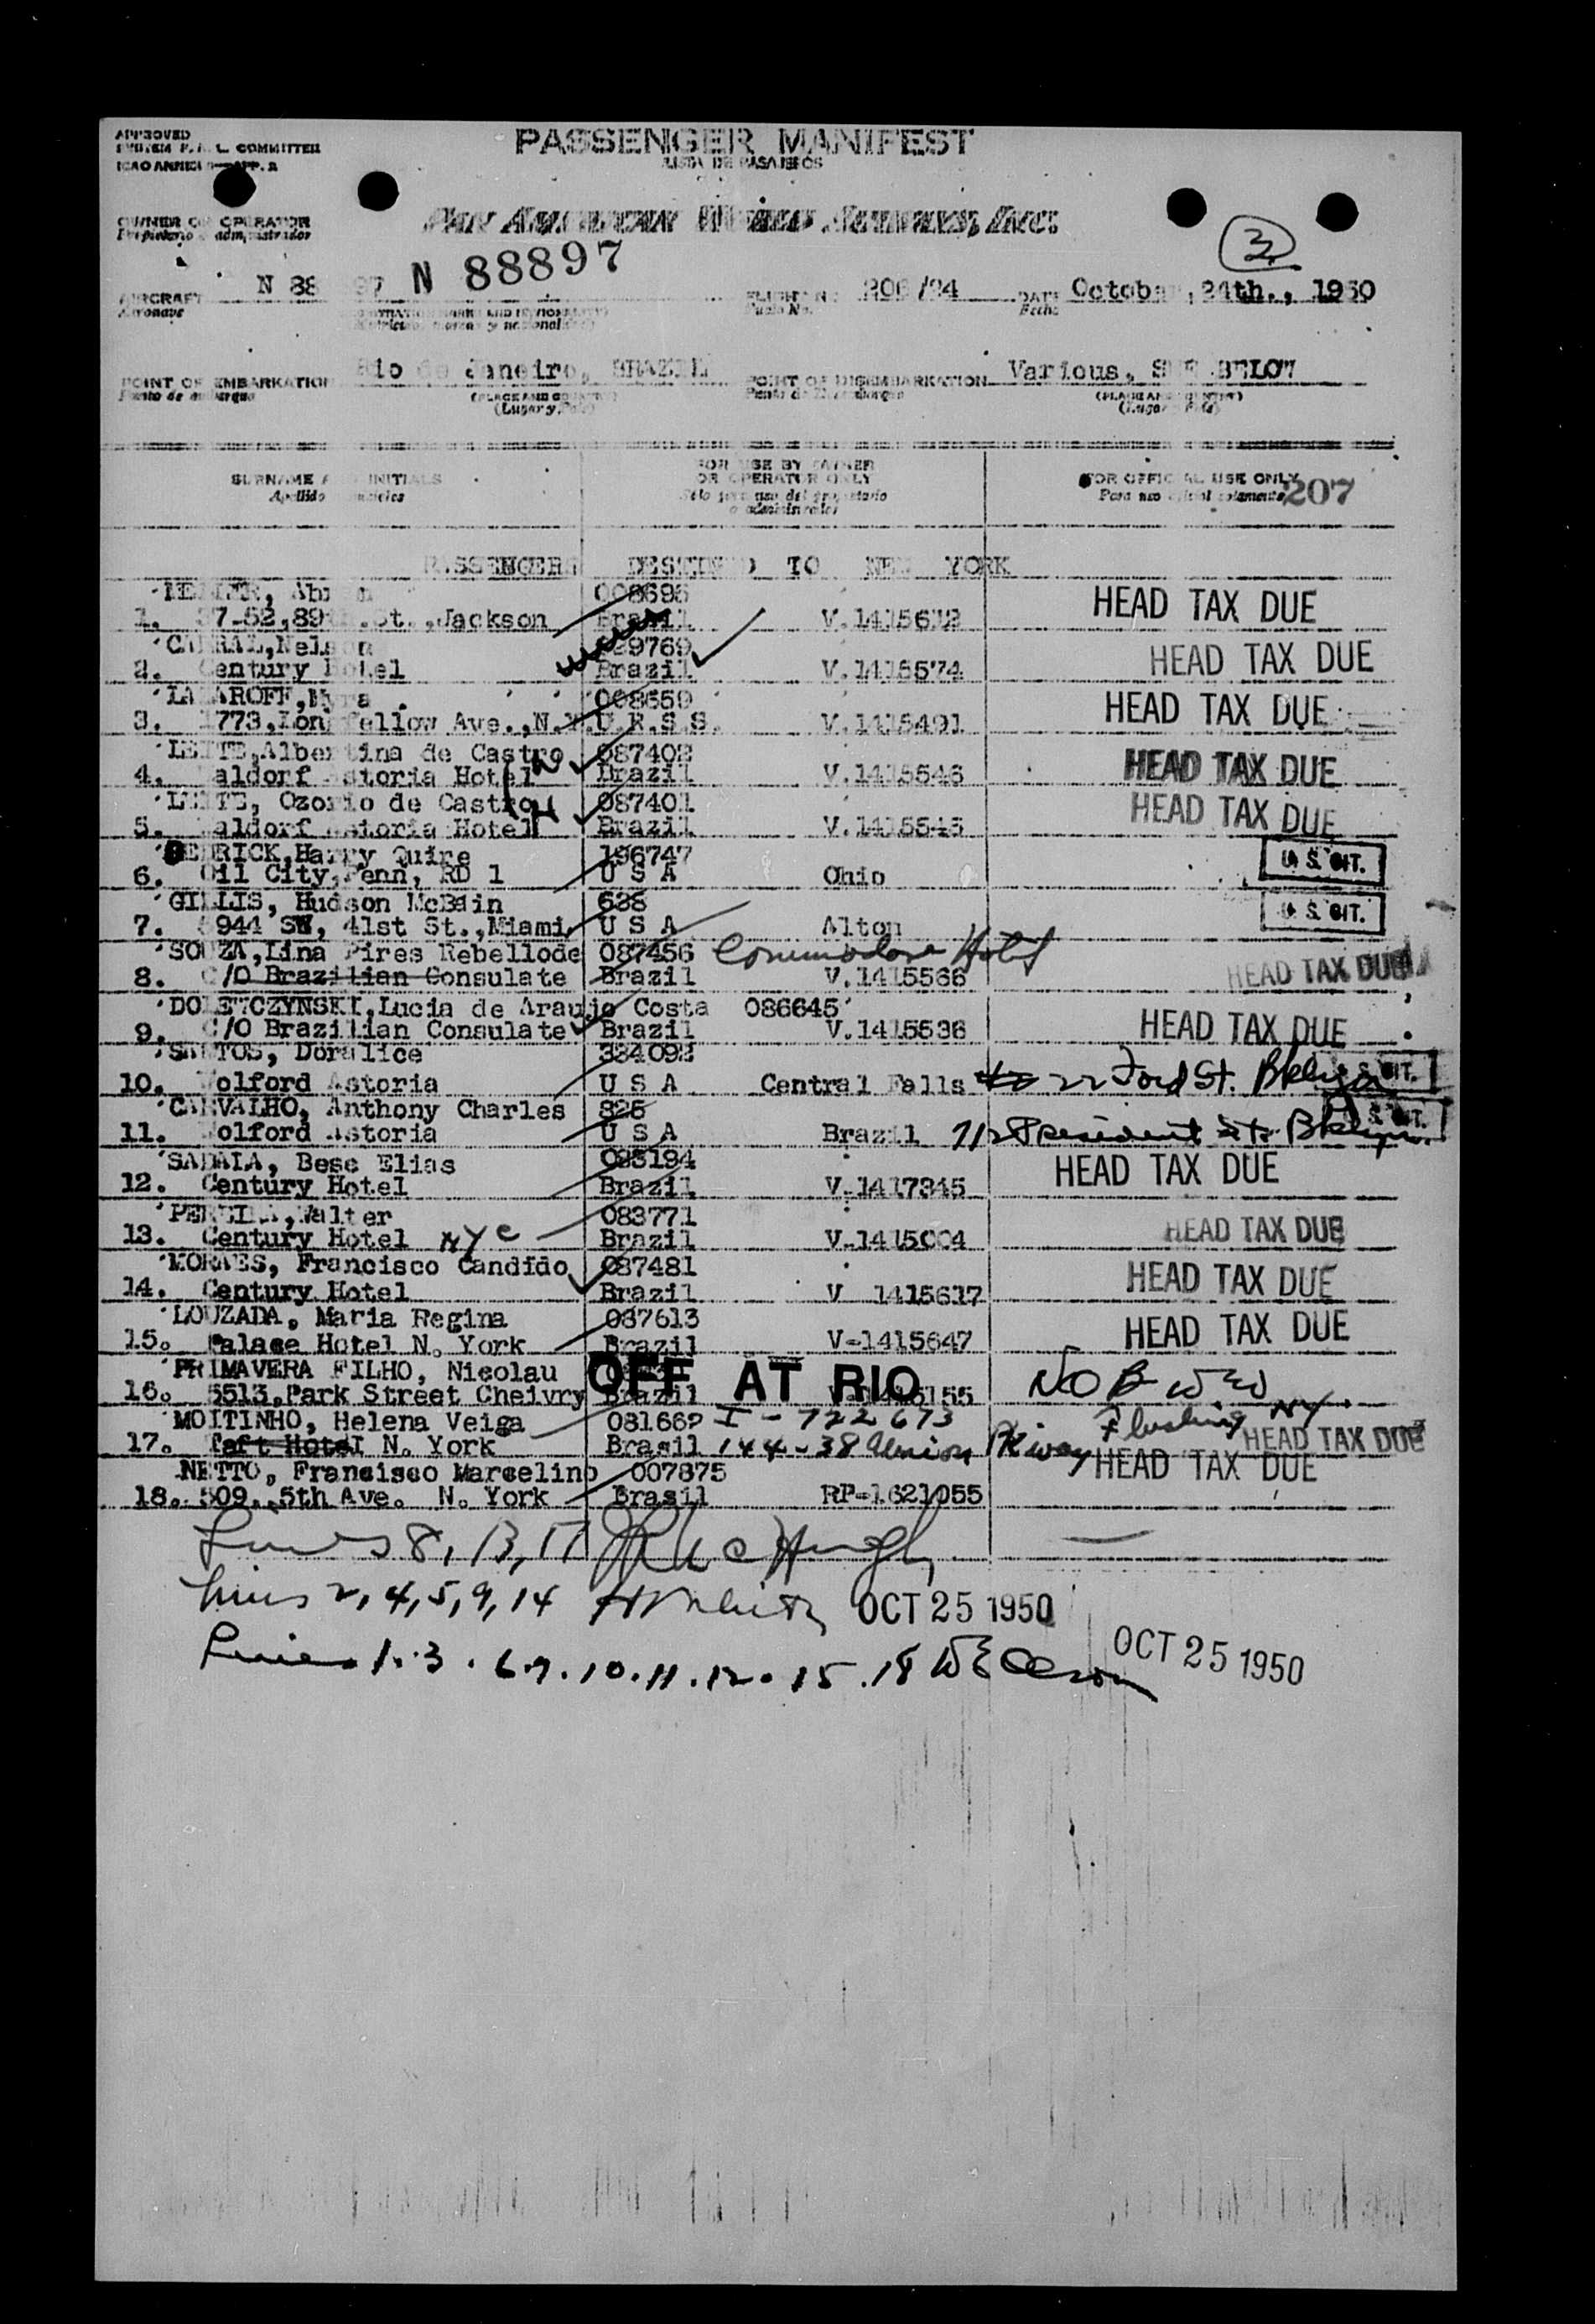 APPROVED
COMMITTEE
PASSENGER MANIFEST
LISTA DE PASAJEROS
OWNER OPERATOR
PAN AMERICAN WORLD AIRWAYS, INC.
3
N 88 97 N 88897
AIRCRAFT
206/24
October 24th., 1950
POINT OF EMBARKATION
Rio de Janeiro, BRAZIL
POINT OF DISEMBARKATION
Various, SEE BELOW
SURNAME INITIALS
FOR USE BY OWNER
OR OPERATOR ONLY
FOR OFFICIAL USE ONLY
207
PASSENGERS DESTINED TO NEW YORK
008696
1. 37-52,89 St.,Jackson Brazil V.1415612 HEAD TAX DUE
CABRAL,Nelson 9769
2. Century Hotel Brazil V.1415574 HEAD TAX DUE
LAZAROFF, 008659
3. 1773,Longfellow Ave.,N.Y. U.R.S.S. V.1415491 HEAD TAX DUE
LEITE,Albertina de Castro 087402
4. Waldorf Astoria Hotel Brazil V.1415546 HEAD TAX DUE
LEITE, Ozorio de Castro 087401
5. Waldorf Astoria Hotel Brazil V.1415545 HEAD TAX DUE
Harry Quire 196747
6. Oil City,Penn, RD 1 U S A Ohio U.S. CIT.
GILLIS, Hudson McBain 638
7. 944 SW, 41st St.,Miami U S A Alton U.S. CIT.
SOUZA,Lina Pires Rebellode 087456 Commodore Hotel
8. C/O Brazilian Consulate Brazil V.1415566 HEAD TAX DUE
Lucia de Araujo Costa 086645
9. C/O Brazilian Consulate Brazil V.1415536 HEAD TAX DUE
SANTOS, Doralice 334093
10. Wolford Astoria U S A Central Falls 22 Ford St. Bklyn U.S. CIT.
CARVALHO, Anthony Charles 825
11. Wolford Astoria U S A Brazil President St. Bklyn U.S. CIT.
SADAIA, Bese Elias 083194
12. Century Hotel Brazil V-1417345 HEAD TAX DUE
PEREIRA,Walter 083771
13. Century Hotel NYC Brazil V-1415004 HEAD TAX DUE
MORAES, Francisco Candido 087481
14. Century Hotel Brazil V 1415617 HEAD TAX DUE
LOUZADA, Maria Regina 087613
15. Palace Hotel N. York Brazil V-1415647 HEAD TAX DUE
PRIMAVERA FILHO, Nicolau OFF AT RIO
16. 5513,Park Street Cheivry Brazil
MOITINHO, Helena Veiga 081662 I-722673 Flushing NY
17. Taft Hotel N. York Brasil 144-38 Union HEAD TAX DUE
NETTO, Francisco Marcelino 007875 HEAD TAX DUE
18. 509, 5th Ave. N. York Brasil RP-1621055
Lines 8, 13, 17
Lines 2, 4, 5, 9, 14 OCT 25 1950
Lines 1.3.6.7.10.11.12.15.18 OCT 25 1950